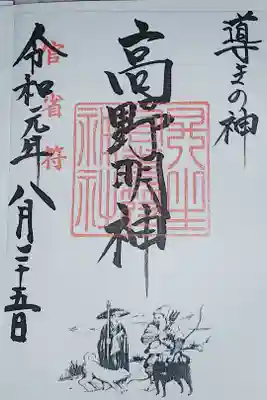 導きの神
高野明神
官省符
令和元年八月二十五日